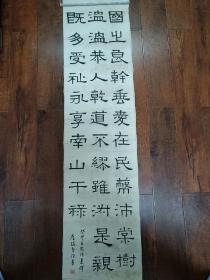 國之良幹垂愛在民蔽沛棠樹
溫溫恭人乾道不繆唯淑是親
既多受祉永享南山干祿